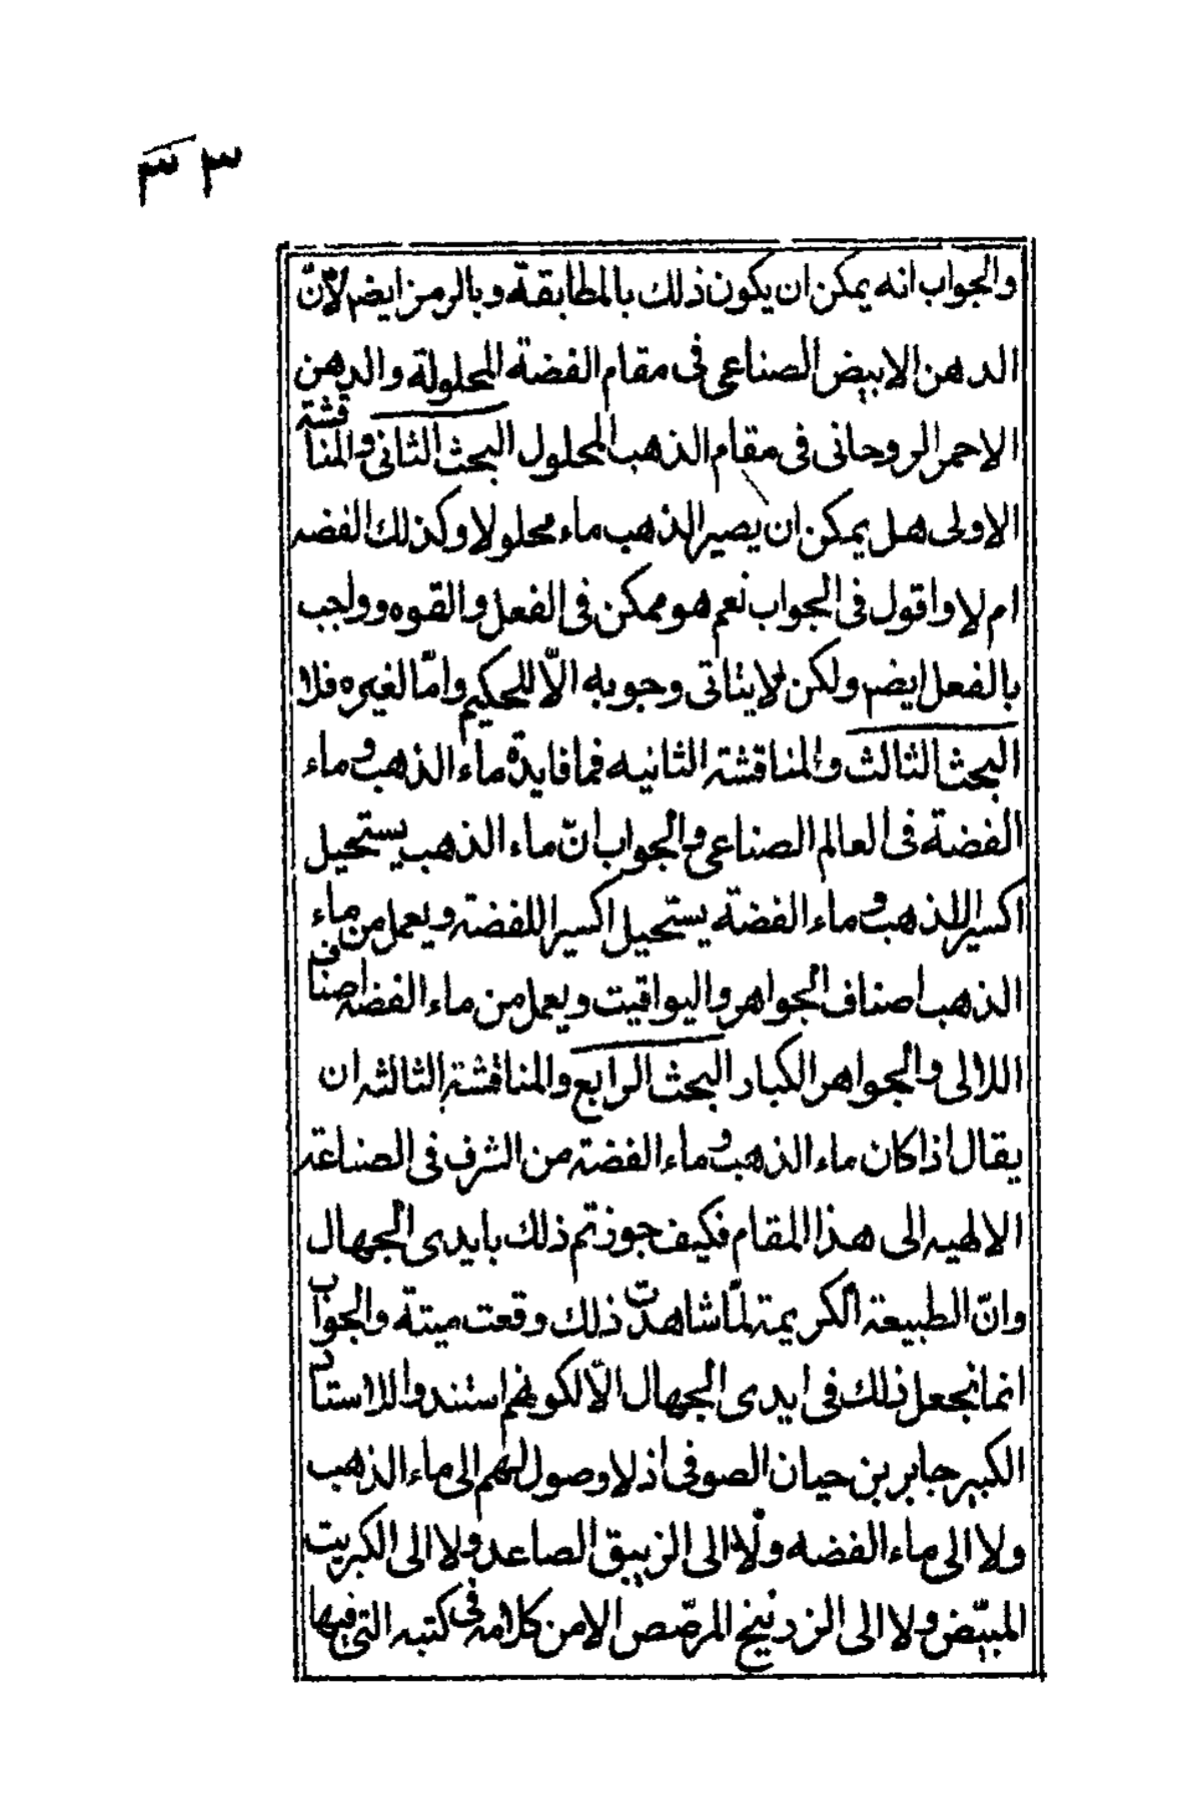 ٣٣
والجواب انه يمكن ان يكون ذلك بالمطابقة وبالرمز ايضم لأنّ
الدهن الابيض الصناعى فى مقام الفضة المحلولة والدهن
الاحمر الروحانى فى مقام الذهب المحلول البحث الثانى والمناقشة
الاولى هل يمكن ان يصير الذهب ماء محلولا وكذلك الفضه
ام لا واقول فى الجواب نعم هو ممكن فى الفعل والقوه وواجب
بالفعل ايضم ولكن لا يتأتى وجوبه الّا للحكيم وامّا لغيره فلا
البحث الثالث والمناقشة الثانيه فما فايدة ماء الذهب وماء
الفضة فى العالم الصناعى والجواب انّ ماء الذهب يستحيل
اكسيرا للذهب وماء الفضة يستحيل اكسيرا للفضة ويعمل من ماء
الذهب اصناف الجواهر واليواقيت ويعمل من ماء الفضه اصناف
اللالى والجواهر الكبار البحث الرابع والمناقشة الثالثه ان
يقال اذا كان ماء الذهب وماء الفضة من الشرف فى الصناعة
الالهيه الى هذا المقام فكيف جوزتم ذلك بايدى الجهال
وانّ الطبيعة الكريمة لمّا شاهدت ذلك وقعت ميتة والجواب
انما نجعل ذلك فى ايدى الجهال الّا لكونهم استندوا للاستاد
الكبير جابر بن حيان الصوفى اذ لا وصول لهم الى ماء الذهب
ولا الى ماء الفضه ولا الى الزيبق الصاعد ولا الى الكبريت
المبيّض ولا الى الزرنيخ المرصّص الا من كلامه فى كتبه التى فيها